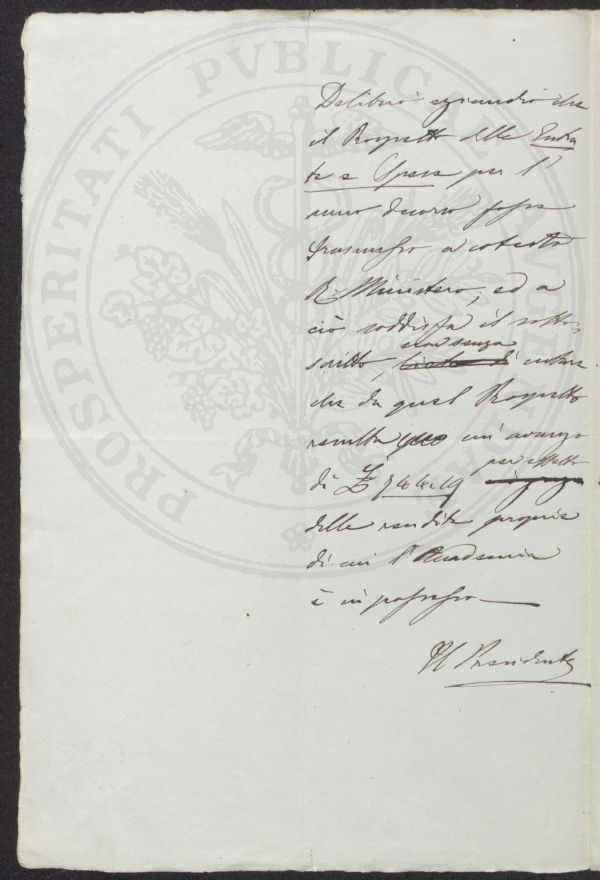 PROSPERITATI PUBLICAE AUGENDAE
Deliberò eziandio che
il Prospetto delle Entra
te e Spese per l'
anno decorso fosse
trasmesso a cotesto
R. Ministero, ed a
ciò soddisfa il sotto-
scritto, non senza notare
che da quel Prospetto
resulta un' avanzo
di per effetto
delle rendite proprie
di cui l'Accademia
è in possesso
Il Presidente